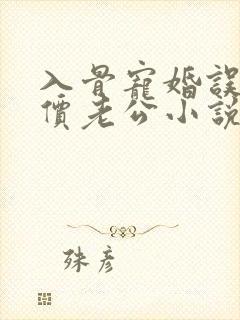 入骨寵婚誤
價老公小說
殊彥